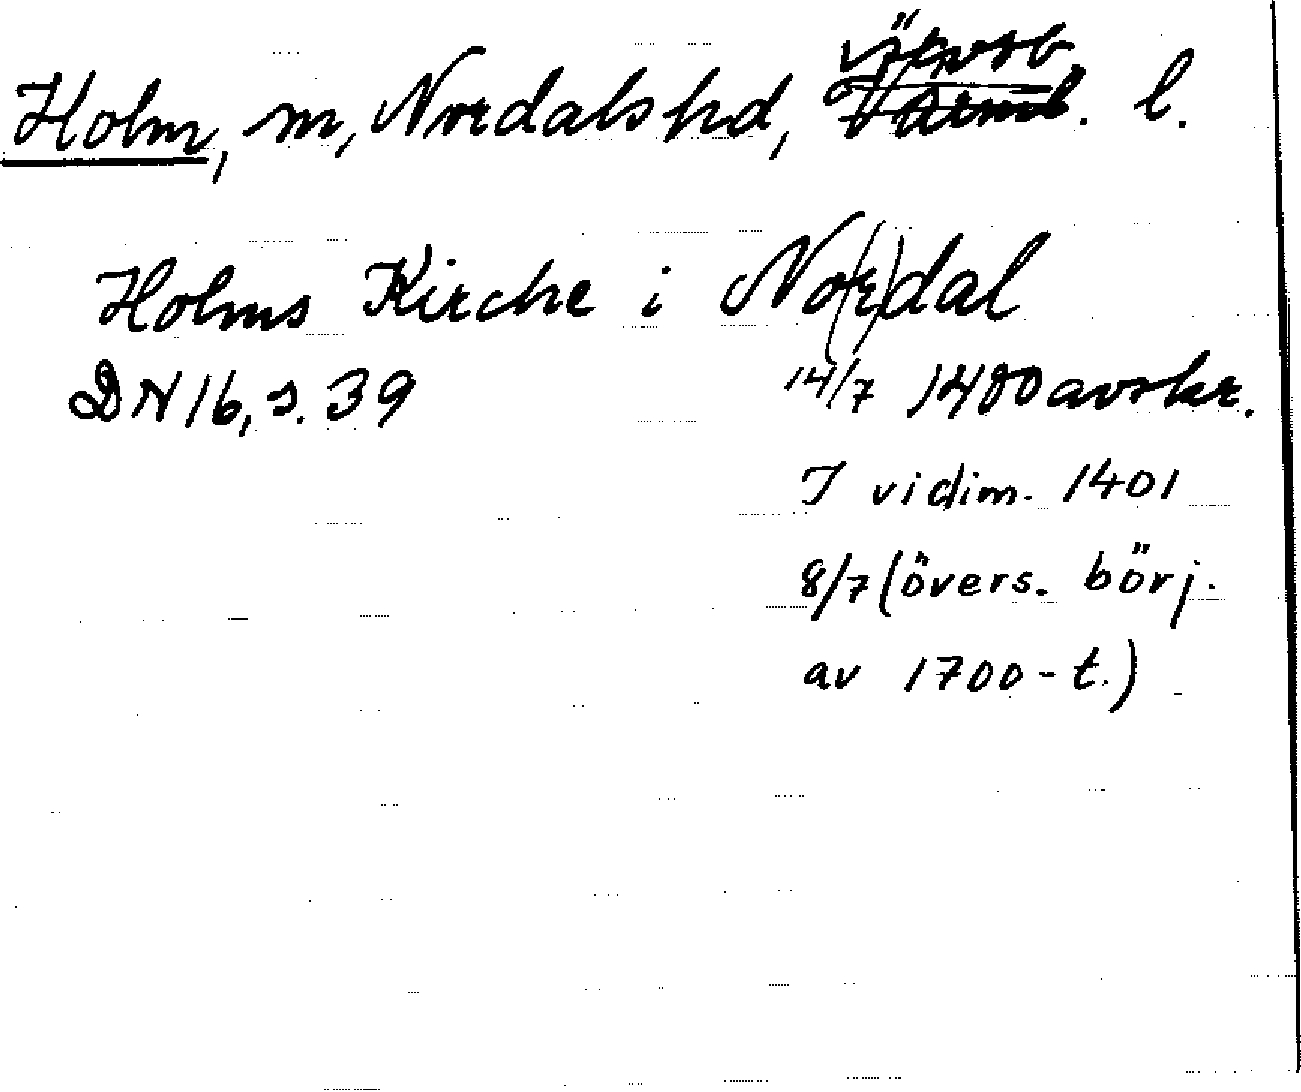 Holm, sn, Nordals hd, Älvsb. l.
Holms Kirche i No(r)dal
DN 16, s. 39 14/7 1400 avskr.
I vidim. 1401
8/7 (övers. börj.
av 1700-t.)